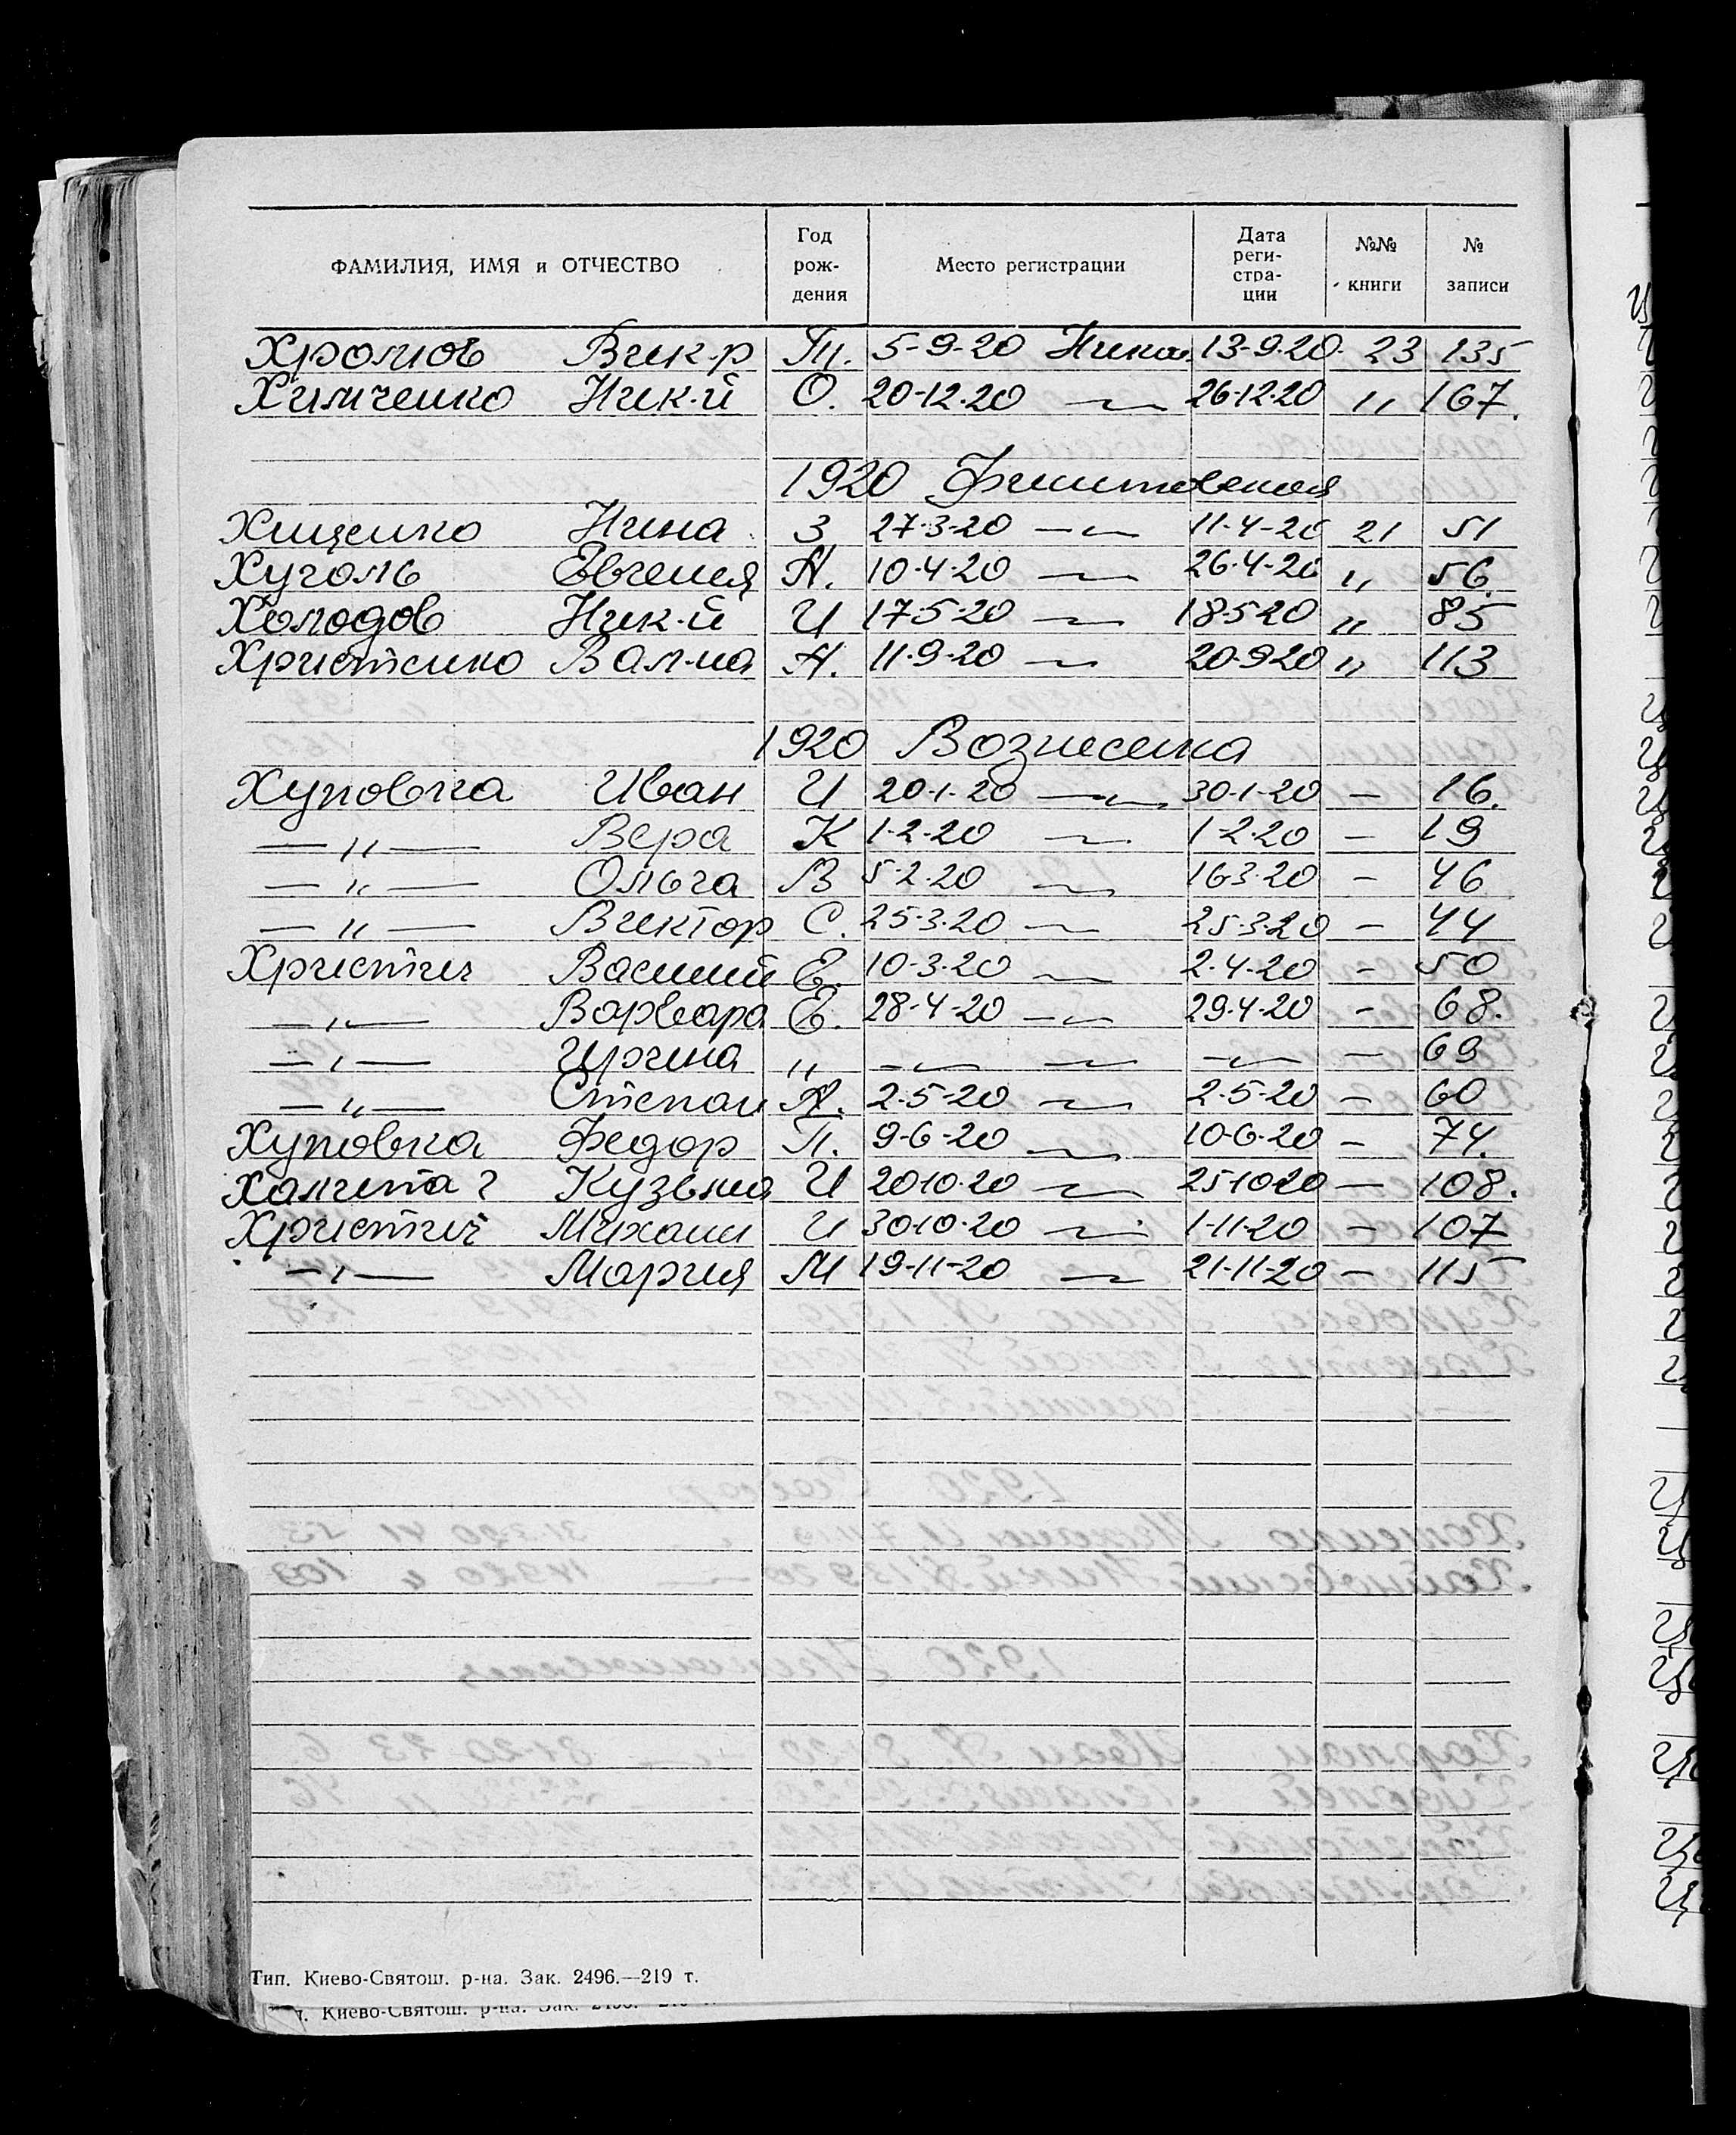 ФАМИЛИЯ, ИМЯ и ОТЧЕСТВО Год рож- дения Место регистрации Дата реги- стра- ции №№ книги № записи
Хромов Вик-р 5-9-20 Никол. 13-9-20 23 135
Химченко Ник-й О. 20-12-20 —〃— 26-12-20 〃 167.
1920
Хищенко Нина З 27-3-20 —〃— 11-4-20 21 51
Хуголь Евгения А. 10-4-20 —〃— 26-4-20 〃 56.
Холодов Ник-й И 17-5-20 —〃— 18-5-20 〃 85
Христенко Вал-на А. 11-9-20 —〃— 20-9-20 〃 113
1920 Вознесенка
Хуповка Иван И 20-1-20 —〃— 30-1-20 — 16.
—〃— Вера К 1-2-20 —〃— 1-2-20 — 19
—〃— Ольга В 5-2-20 —〃— 16-3-20 — 46
—〃— Виктор С. 25-3-20 —〃— 25-3-20 — 44
Христич Василий Е. 10-3-20 —〃— 2-4-20 — 50
—〃— Варвара Е. 28-4-20 —〃— 29-4-20 — 68.
—〃— Ирина 〃 —〃— —〃— —〃— — 69
—〃— Степан А. 2-5-20 —〃— 2-5-20 — 60
Хуповка Федор П. 9-6-20 —〃— 10-6-20 — 74.
Кузьма И 20-10-20 —〃— 25-10-20 — 108.
Христич Михаил И 30-10-20 —〃— 1-11-20 — 107
—〃— Мария М 19-11-20 —〃— 21-11-20 — 115
Тип. Киево-Святош. р-на. Зак. 2496.—219 т.
Киево-Святош. р-на. Зак.